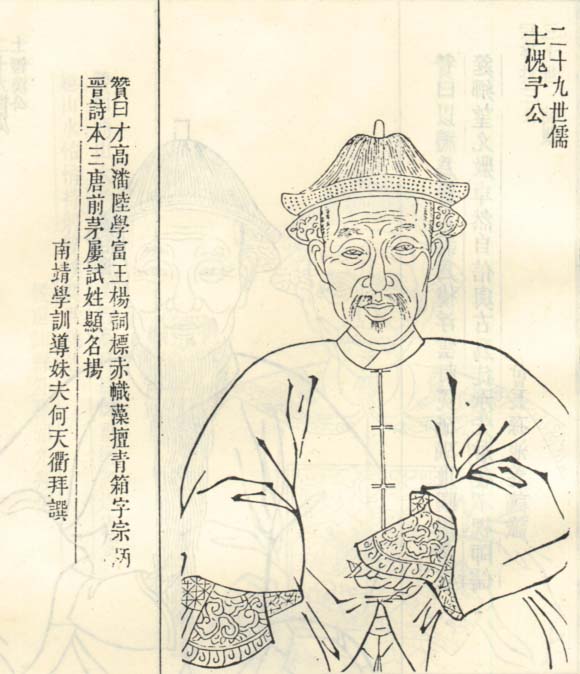 二十九世儒
士愧予公
贊曰才高潘陸學富王楊詞標赤幟藻擅青箱字宗
晉詩本三唐前茅屢試姓顯名揚
南靖學訓導妹夫何天衢拜譔